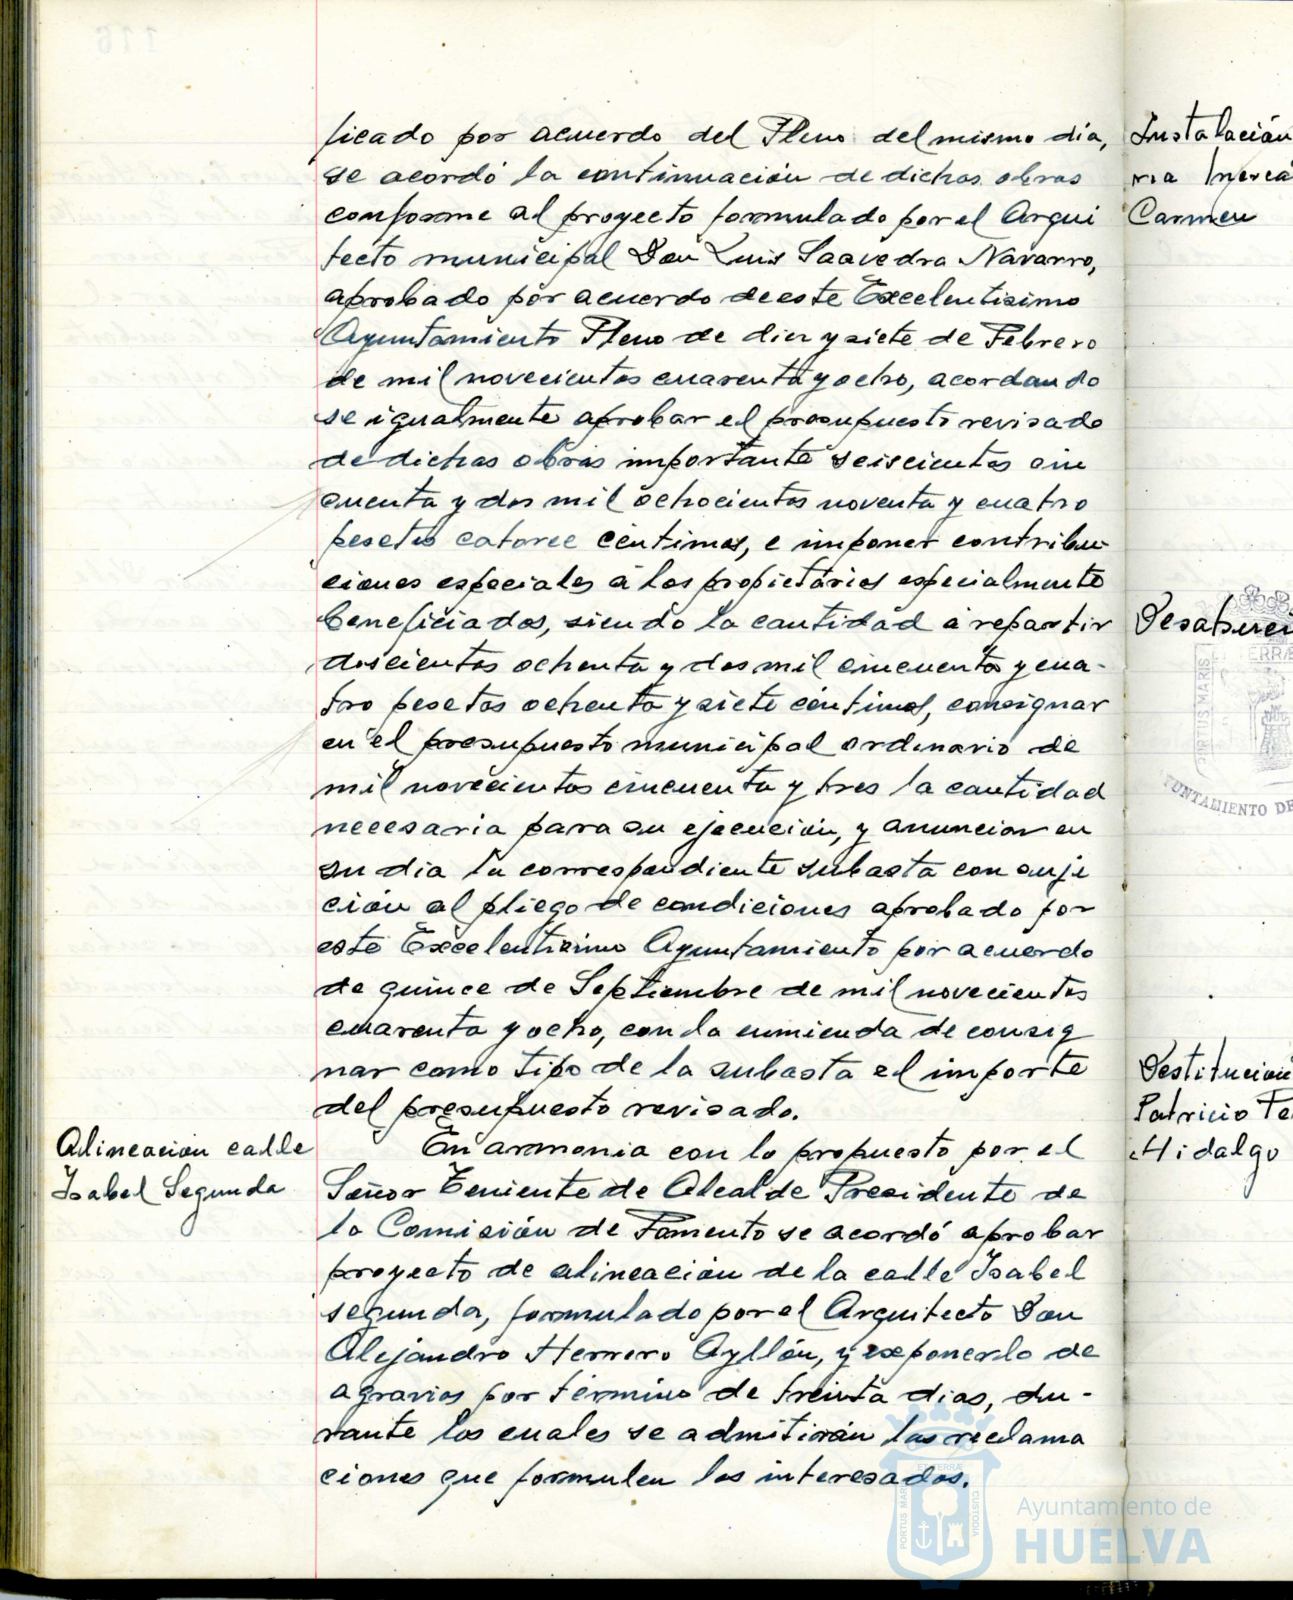 ficado por acuerdo del Pleno del mismo dia,
se acordó la continuación de dichas obras
conforme al proyecto formulado por el Arqui
tecto municipal Don Luis Saavedra Navarro,
aprobado por acuerdo de este Excelentisimo
Ayuntamiento Pleno de diez y siete de Febrero
de mil novecientos cuarenta y ocho, acordando
se igualmente aprobar el presupuesto revisado
de dichas obras importante seiscientas cin
cuenta y dos mil ochocientas noventa y cuatro
pesetas catorce céntimos, e imponer contribu
ciones especiales á los propietários especialmente
beneficiados, siendo la cantidad á repartir
doscientas ochenta y dos mil cincuenta y cua-
tro pesetas ochenta y siete céntimos, consignar
en el presupuesto municipal ordinario de
mil novecientos cincuenta y tres la cantidad
necesaria para su ejecución, y anunciar en
su dia la correspondiente subasta con suje
ción al pliego de condiciones aprobado por
este Excelentisimo Ayuntamiento por acuerdo
de quince de Septiembre de mil novecientos
cuarenta y ocho, con la enmienda de consig
nar como tipo de la subasta el importe
del presupuesto revisado.
Alineación calle
Isabel Segunda
En armonia con lo propuesto por el
Señor Teniente de Alcalde Presidente de
la Comisión de Fomento se acordó aprobar
proyecto de alineación de la calle Isabel
segunda, formulado por el Arquitecto Don
Alejandro Herrero Ayllón, y exponerlo de
agravios por término de treinta dias, du-
rante los cuales se admitirán las reclama
ciones que formulen los interesados.
Instalación
ria
Carmen
PORTUS MARIS
TERRÆ
UNTAMIENTO DE
Destitución
Patricio Fe
Hidalgo
PORTUS MARIS
ET TERRÆ
CUSTODIA
Ayuntamiento de
HUELVA
116